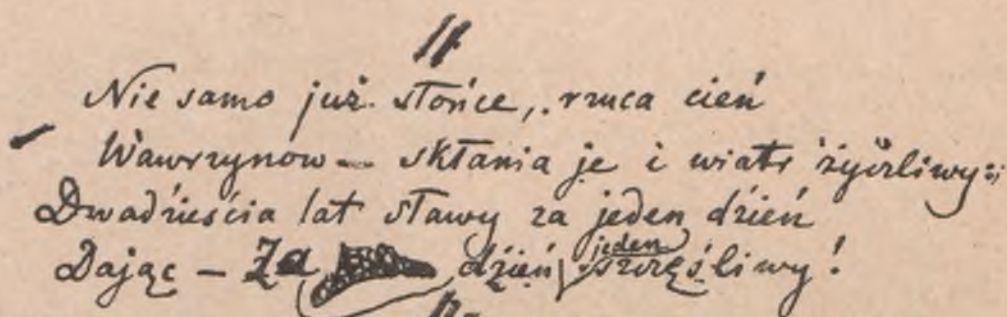 Nie samo już słońce, rzuca cień
Wawrzynów — skłania je i wiatr życzliwy:
Dwadzieścia lat sławy za jeden dzień
Dając — Za dzień jeden szczęśliwy!